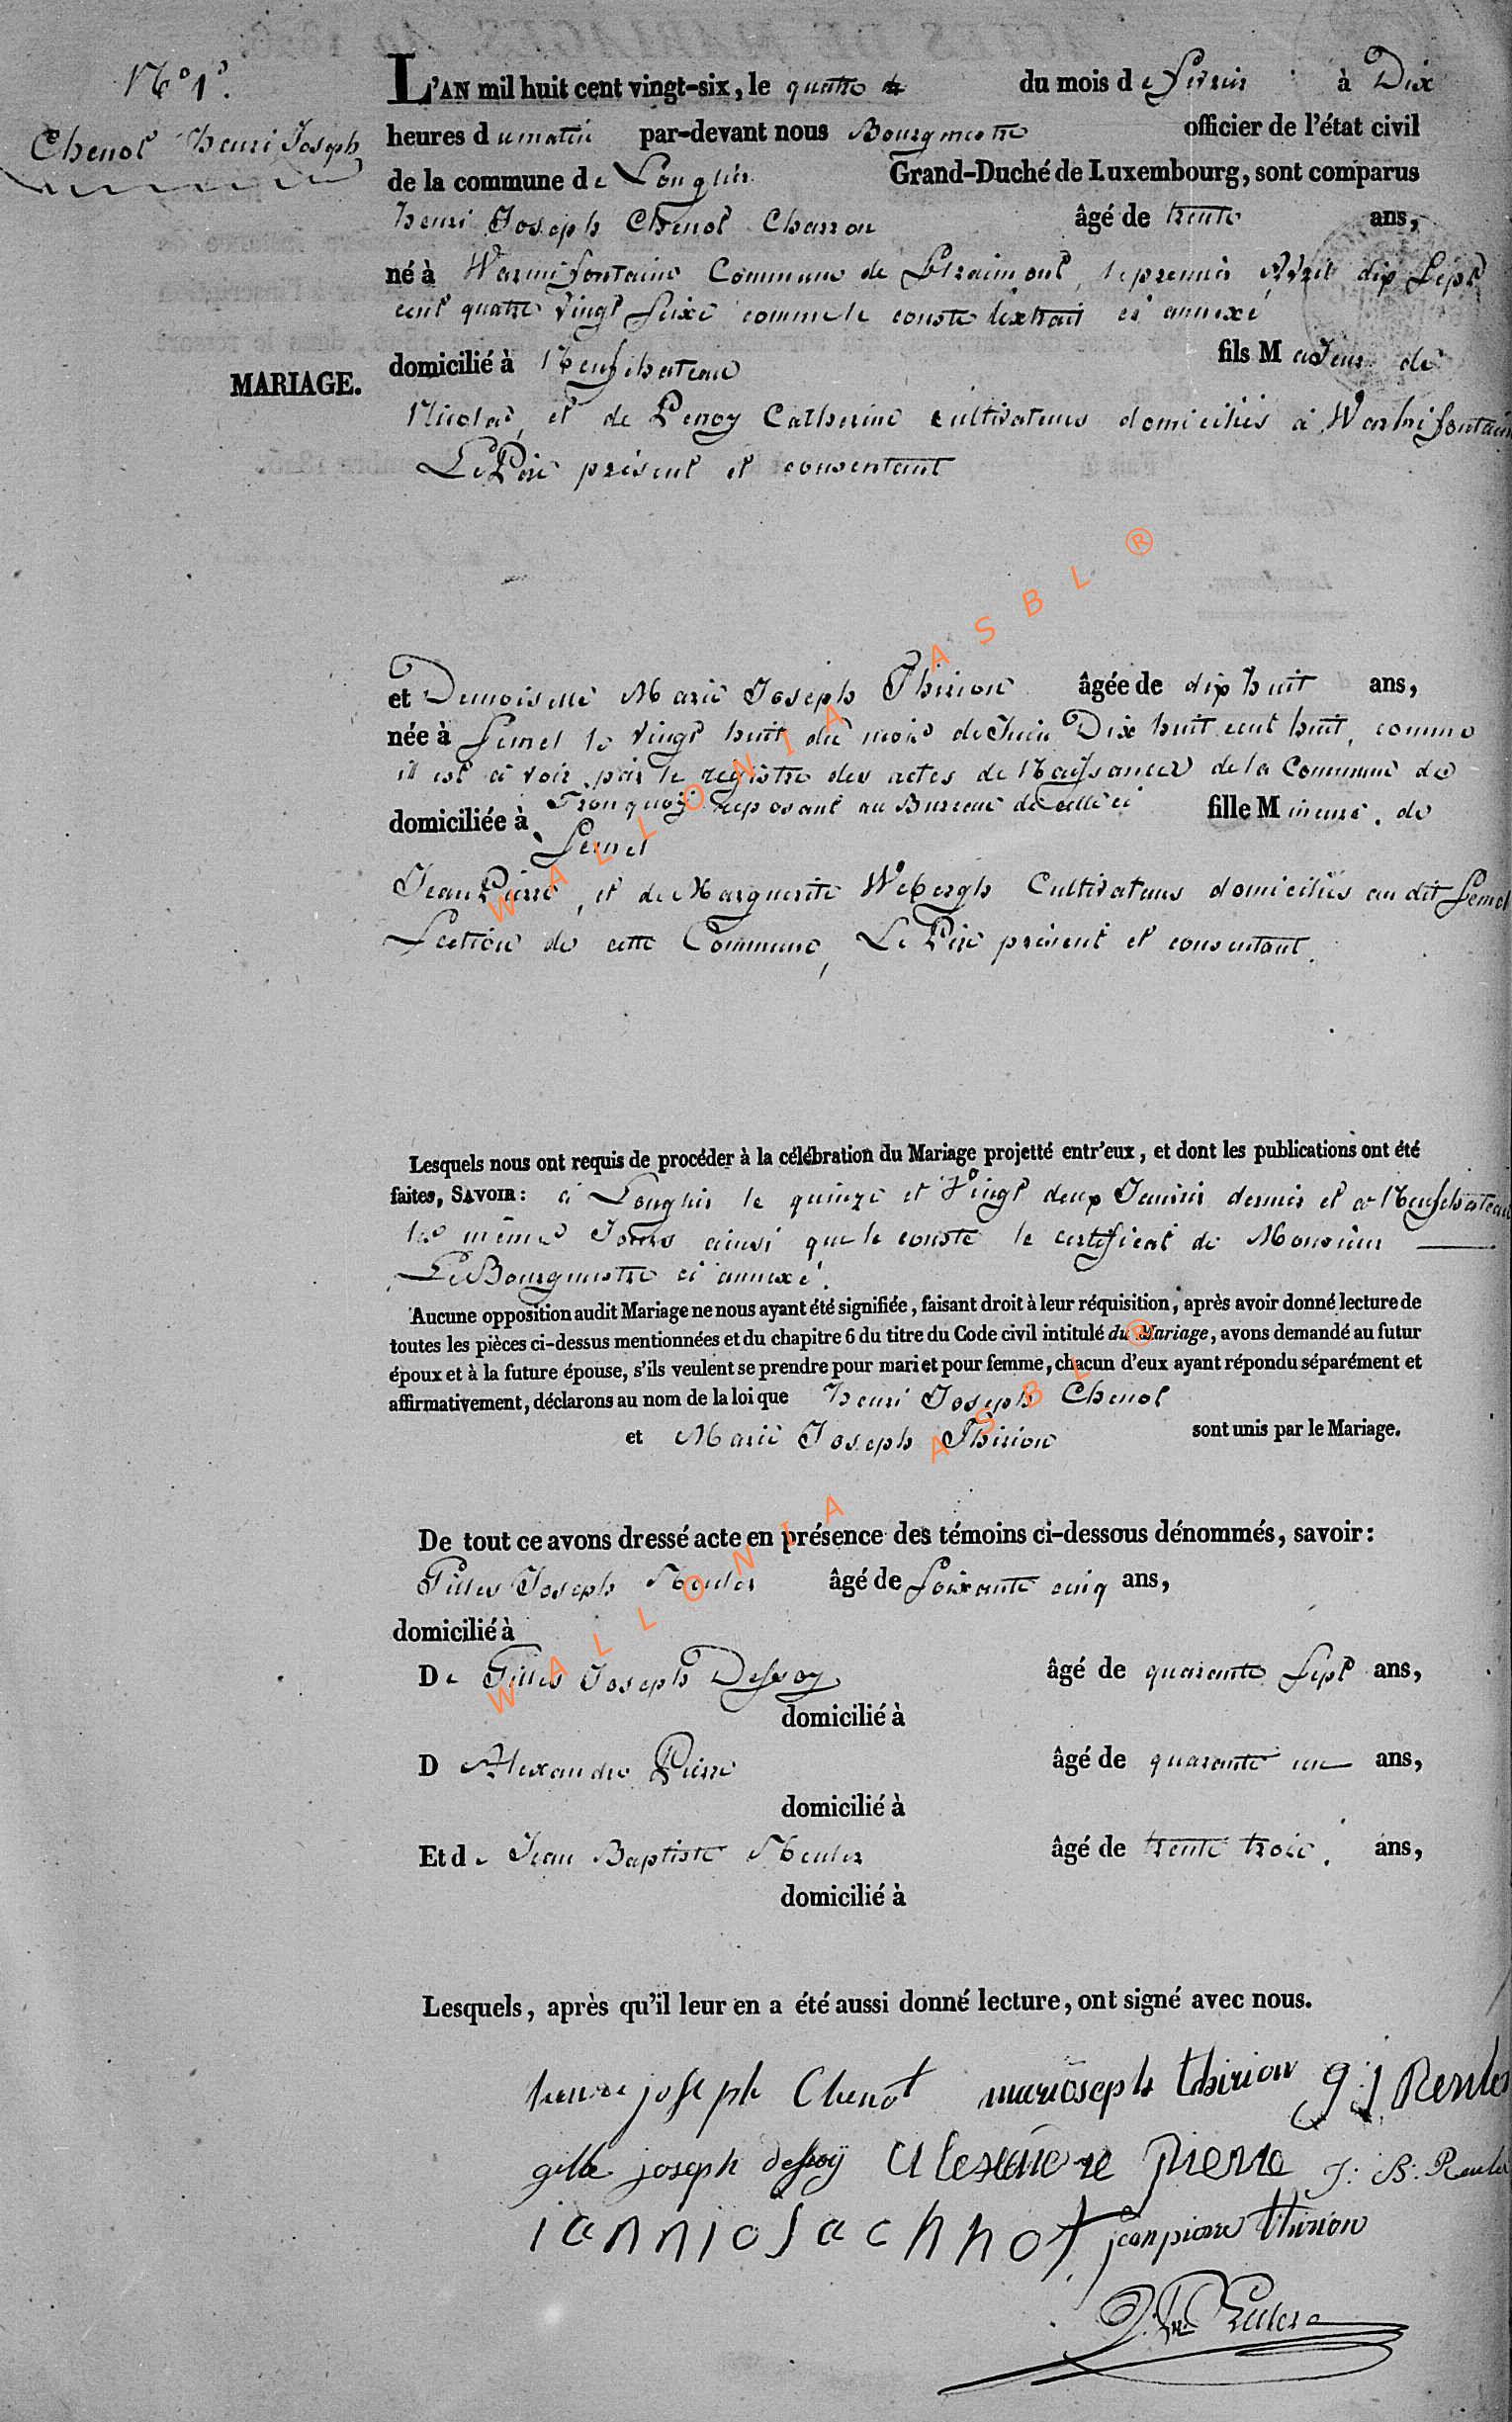 N° 1°.
Chenot henri Joseph
MARIAGE.
L'AN mil huit cent vingt-six, le quatre du mois de fevrier à Dix
heures du matin par-devant nous Bourgmestre officier de l'état civil
de la commune de Longlier Grand-Duché de Luxembourg, sont comparus
henri Joseph Chenot Charron âgé de trente ans,
né à Warmifontaine Commune de Straimont, le premier Avril dix Sept
cent quatre vingt Seize comme le conste l'extrait ci annexé
domicilié à Neufchateau fils Majeur de
Nicolas, et de Catherine cultivateurs domiciliés à Warmifontaine
Le Père présent et consentant
et Demoiselle Marie Joseph Thirion âgée de dix huit ans,
née à Semel le vingt huit du mois de Juin Dix huit cent huit, comme
il est à voir par le registre des actes de Naissances de la Commune de
Tronquoy reposant au Bureau de celle ci
domiciliée à Semel fille Mineure de
Jean Pierre, et de Marguerite Cultivateurs domiciliés au dit Semel
Section de cette Commune, Le Père présent et consentant.
Lesquels nous ont requis de procéder à la célébration du Mariage projetté entr'eux, et dont les publications ont été
faites, SAVOIR: à Longlier le quinze et Vingt deux Janvier dernier et à Neufchateau
les mêmes Jours ainsi que le conste le certificat de Monsieur
Le Bourgmestre ci annexé.
Aucune opposition audit Mariage ne nous ayant été signifiée, faisant droit à leur réquisition, après avoir donné lecture de
toutes les pièces ci-dessus mentionnées et du chapitre 6 du titre du Code civil intitulé du Mariage, avons demandé au futur
époux et à la future épouse, s'ils veulent se prendre pour mari et pour femme, chacun d'eux ayant répondu séparément et
affirmativement, déclarons au nom de la loi que henri Joseph Chenot
et Marie Joseph Thirion sont unis par le Mariage.
De tout ce avons dressé acte en présence des témoins ci-dessous dénommés, savoir:
Gilles Joseph Reuler âgé de Soixante cinq ans,
domicilié à
De Gilles Joseph Dessoy âgé de quarante Sept ans,
domicilié à
D Alexandre Pierre âgé de quarante un ans,
domicilié à
Et de Jean Baptiste Reuler âgé de trente trois. ans,
domicilié à
Lesquels, après qu'il leur en a été aussi donné lecture, ont signé avec nous.
henri joseph Chenot marioseph thirion g: j Reuler
gille joseph dessoÿ alexandre pierre J: B: Reuler
jean pierre thirion
WALLONIA ASBL ®
WALLONIA ASBL ®